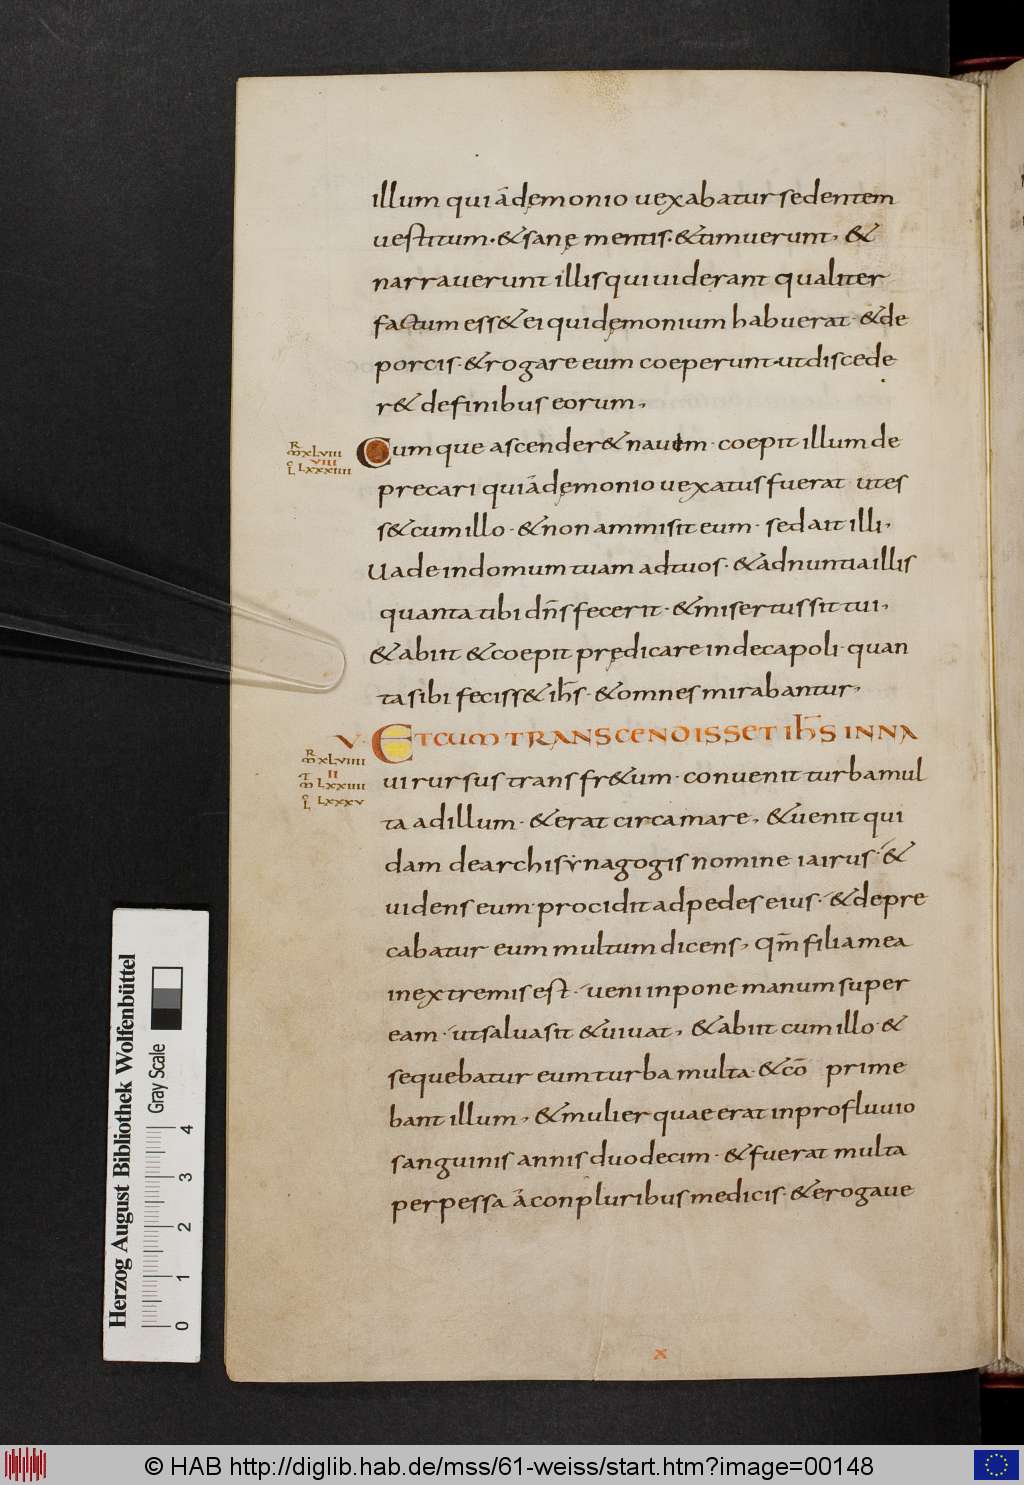 illum qui ádęmonio uexabatur sedentem
uestitum· &sanę mentis· &timuerunt, &
narrauerunt illis qui uiderant qualiter
factum ess& ei qui dęmonium habuerat· &de
porcis· &rogare eum coeperunt· ut discede
r& de finibus eorum,
Cumque ascender& nauem· coepit illum de
precari qui ádęmonio uexatus fuerat· ut es
s& cum illo· &non ammisit eum· sed ait illi,
Uade in domum tuam ad tuos· &adnuntia illis
quanta tibi dn̄s fecerit· &misertus sit tui,
&abiit &coepit prędicare in decapoli· quan
ta sibi feciss& ih̄s· &omnes mirabantur,
V· ETCUM TRANSCENDISSET IH̄S IN NA
ui rursus trans fr&um· conuenit turba mul
ta ad illum· &erat circa mare, &uenit qui
dam de archisẏnagogis nomine iairus· &
uidens eum· procidit ad pedes eius· &depre
cabatur eum multum dicens, qm̄ filia mea
in extremis est· ueni inpone manum super
eam· ut salua sit &uiuat, &abiit cum illo· &
sequebatur eum turba multa· &cō prime
bant illum, &mulier quae erat in profluuio
sanguinis annis duodecim· &fuerat multa
perpessa á conpluribus medicis· &erogaue
R
M XLVIII
VIII
L LXXXIIII
R
M XLVIIII
II
M LXXIIII
L LXXXV
x
Herzog August Bibliothek Wolfenbüttel
Gray Scale
0 1 2 3 4
© HAB http://diglib.hab.de/mss/61-weiss/start.htm?image=00148